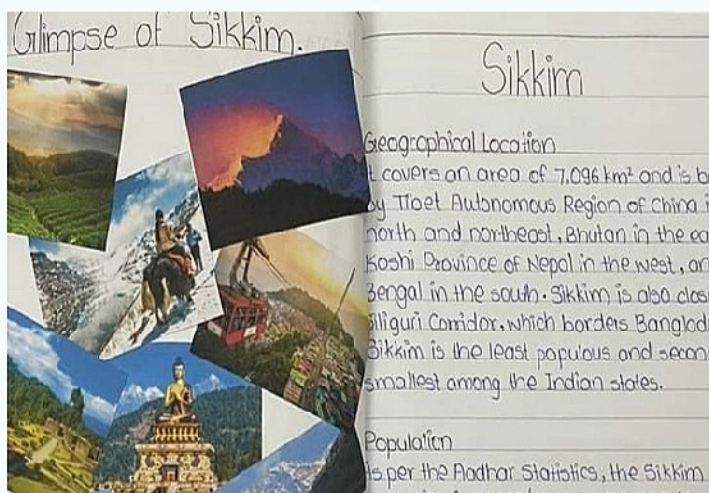 Glimpse of Sikkim.
Sikkim
Geographical Location
t covers an area of 7,096 km² and is b
by Tibet Autonomous Region of China i
north and northeast, Bhutan in the ea
Koshi Province of Nepal in the west, an
Bengal in the south. Sikkim is also clos
Siliguri Corridor, which borders Banglad
Sikkim is the least populous and secon
smallest among the Indian states.
Population
As per the Aadhar Statistics, the Sikkim